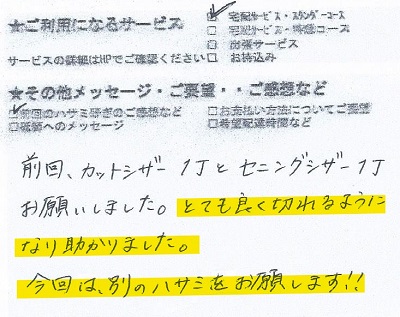 ★ご利用になるサービス
☑宅配サービス・スタンダードコース
□宅配サービス・特急コース
□出張サービス
サービスの詳細はHPでご確認ください □お持込み
★その他メッセージ・ご要望・・ご感想など
☑前回のハサミ研ぎのご感想など □お支払い方法についてご要望
□砥師へのメッセージ □希望配達時間など
前回、カットシザー 1丁とセニングシザー1丁
お願いしました。とても良く切れるように
なり助かりました。
今回は、別のハサミをお願します!!